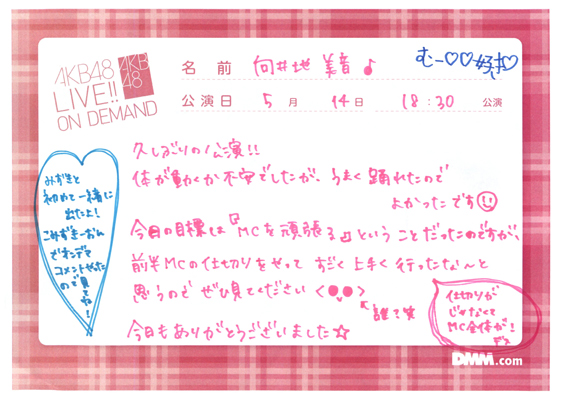 AKB48
LIVE!!
ON DEMAND
AKB
48
名 前 向井地 美音♪
むー♡♡好き♡
公演日 5 月 14 日 18:30 公演
久しぶりの公演!!
体が動くか不安でしたが、うまく踊れたので
よかったです
今日の目標は『MCを頑張る』ということだったのですが、
前半MCの仕切りをやって すごく上手く行ったな〜と
思うので ぜひ見てください
←誰て笑
今日もありがとうございました☆
みずきと
初めて一緒に
出たよ!
こみずきーおん
でオンデマ
コメントやった
ので見てね!
仕切りが
じゃなくて
MC全体が!
DMM.com